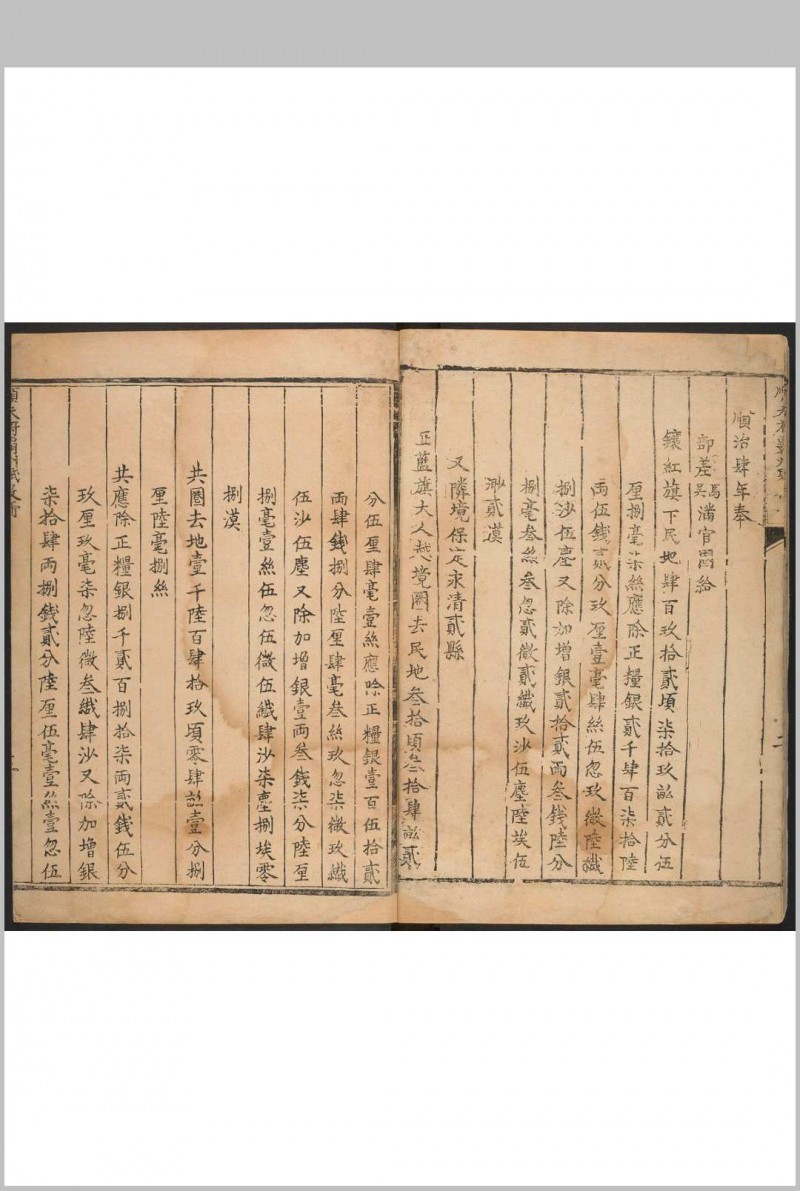 順治肆年奉
部差吳馮潘官圈給
鑲紅旗下民地肆百玖拾貳頃柒拾玖畝貳分伍
厘捌毫柒絲應除正糧銀貳千肆百柒拾陸
兩伍錢貳分玖厘壹毫肆絲伍忽玖微陸纖
捌沙伍塵又除加增銀貳拾貳兩叁錢陸分
捌毫叁絲叁忽貳微貳纖玖沙伍塵陸埃伍
渺貳漠
又隣境保定永清貳縣
正藍旗大人越境圈去民地叁拾頃叁拾肆畝貳
分伍厘肆毫壹絲應除正糧銀壹百伍拾貳
兩肆錢捌分陸厘肆毫叁絲玖忽柒微玖纖
伍沙伍塵又除加增銀壹兩叁錢柒分陸厘
捌毫壹絲伍忽伍微伍纖肆沙柒塵捌埃零
捌漠
共圈去地壹千陸百肆拾玖頃零肆畝壹分捌
厘陸毫捌絲
共應除正糧銀捌千貳百捌拾柒兩貳錢伍分
玖厘玖毫柒忽陸微叁纖肆沙又除加增銀
柒拾肆兩捌錢貳分陸厘伍毫壹絲壹忽伍